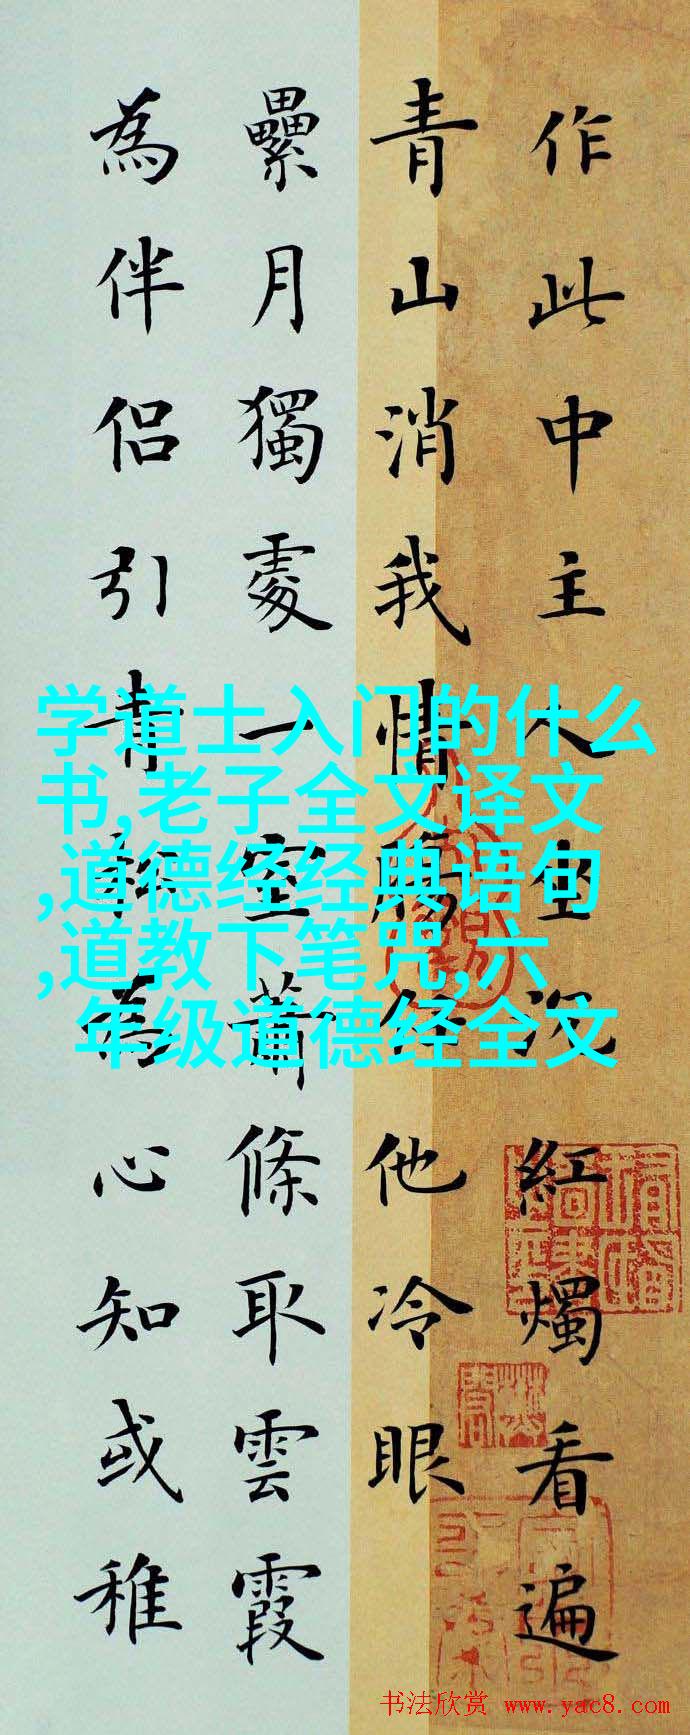 作此中主人坐況紅燭看遍
青山消我情腸任他冷眼
纍月獨處一室蕭條取雲霞
為伴侶引青松為心知或稚
学道士入门的什么
书,老子全文译文
,道德经经典语句
,道教下笔咒,六
年级道德经全文
书法欣赏 www.yac8.com